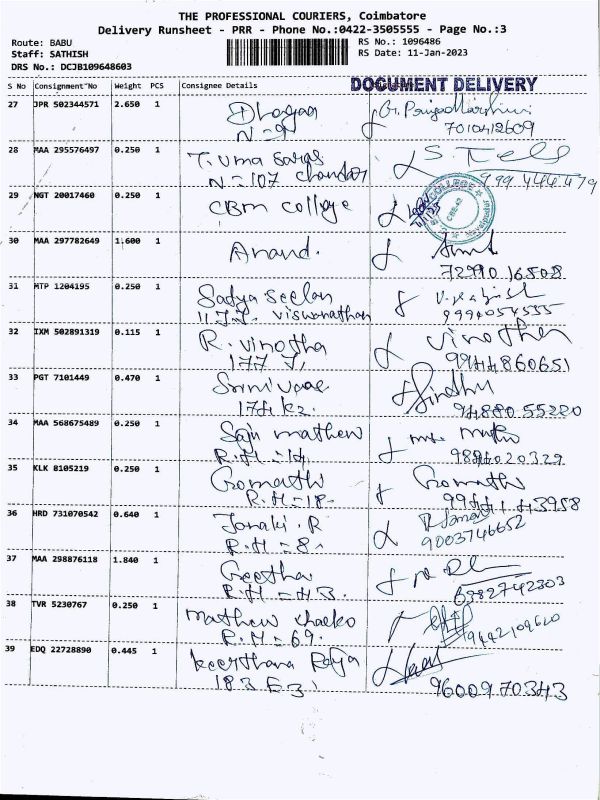 THE PROFESSIONAL COURIERS, Coimbatore
Delivery Runsheet - PRR - Phone No.:0422-3505555 - Page No.:3
Route: BABU
Staff: SATHISH
DRS No.: DCJB109648603
RS No.: 1096486
RS Date: 11-Jan-2023
DOCUMENT DELIVERY
S No Consignment No Weight PCS Consignee Details
27 JPR 502344571 2.650 1
7010412609
28 MAA 295576497 0.250 1 T. Uma
N=107
29 NGT 20017460 0.250 1 CBM college
COLLEGE
30 MAA 297782649 1.600 1 Anand.
72990 16508
31 MTP 1204195 0.250 1 Sadya Seelan
viswanathan
9994054555
32 IXM 502891319 0.115 1 R. Vinotha Vinotha
177
9944860651
33 PGT 7101449 0.470 1 Sindhu
174 k2.
94880 55220
34 MAA 568675489 0.250 1 Saju mathew
R.H=14.
9894020329
35 KLK 8105219 0.250 1 Gomathi Gomathi
R.H=18.
36 HRD 731070542 0.640 1 Janaki. R
R.H=8.
9003746652
37 MAA 298876118 1.840 1 Geetha
R.H=43.
6382742303
38 TVR 5230767 0.250 1 mathew chacko
R.H=69.
9442109620
39 EDQ 22728890 0.445 1 keerthana
183 E3
9600970343